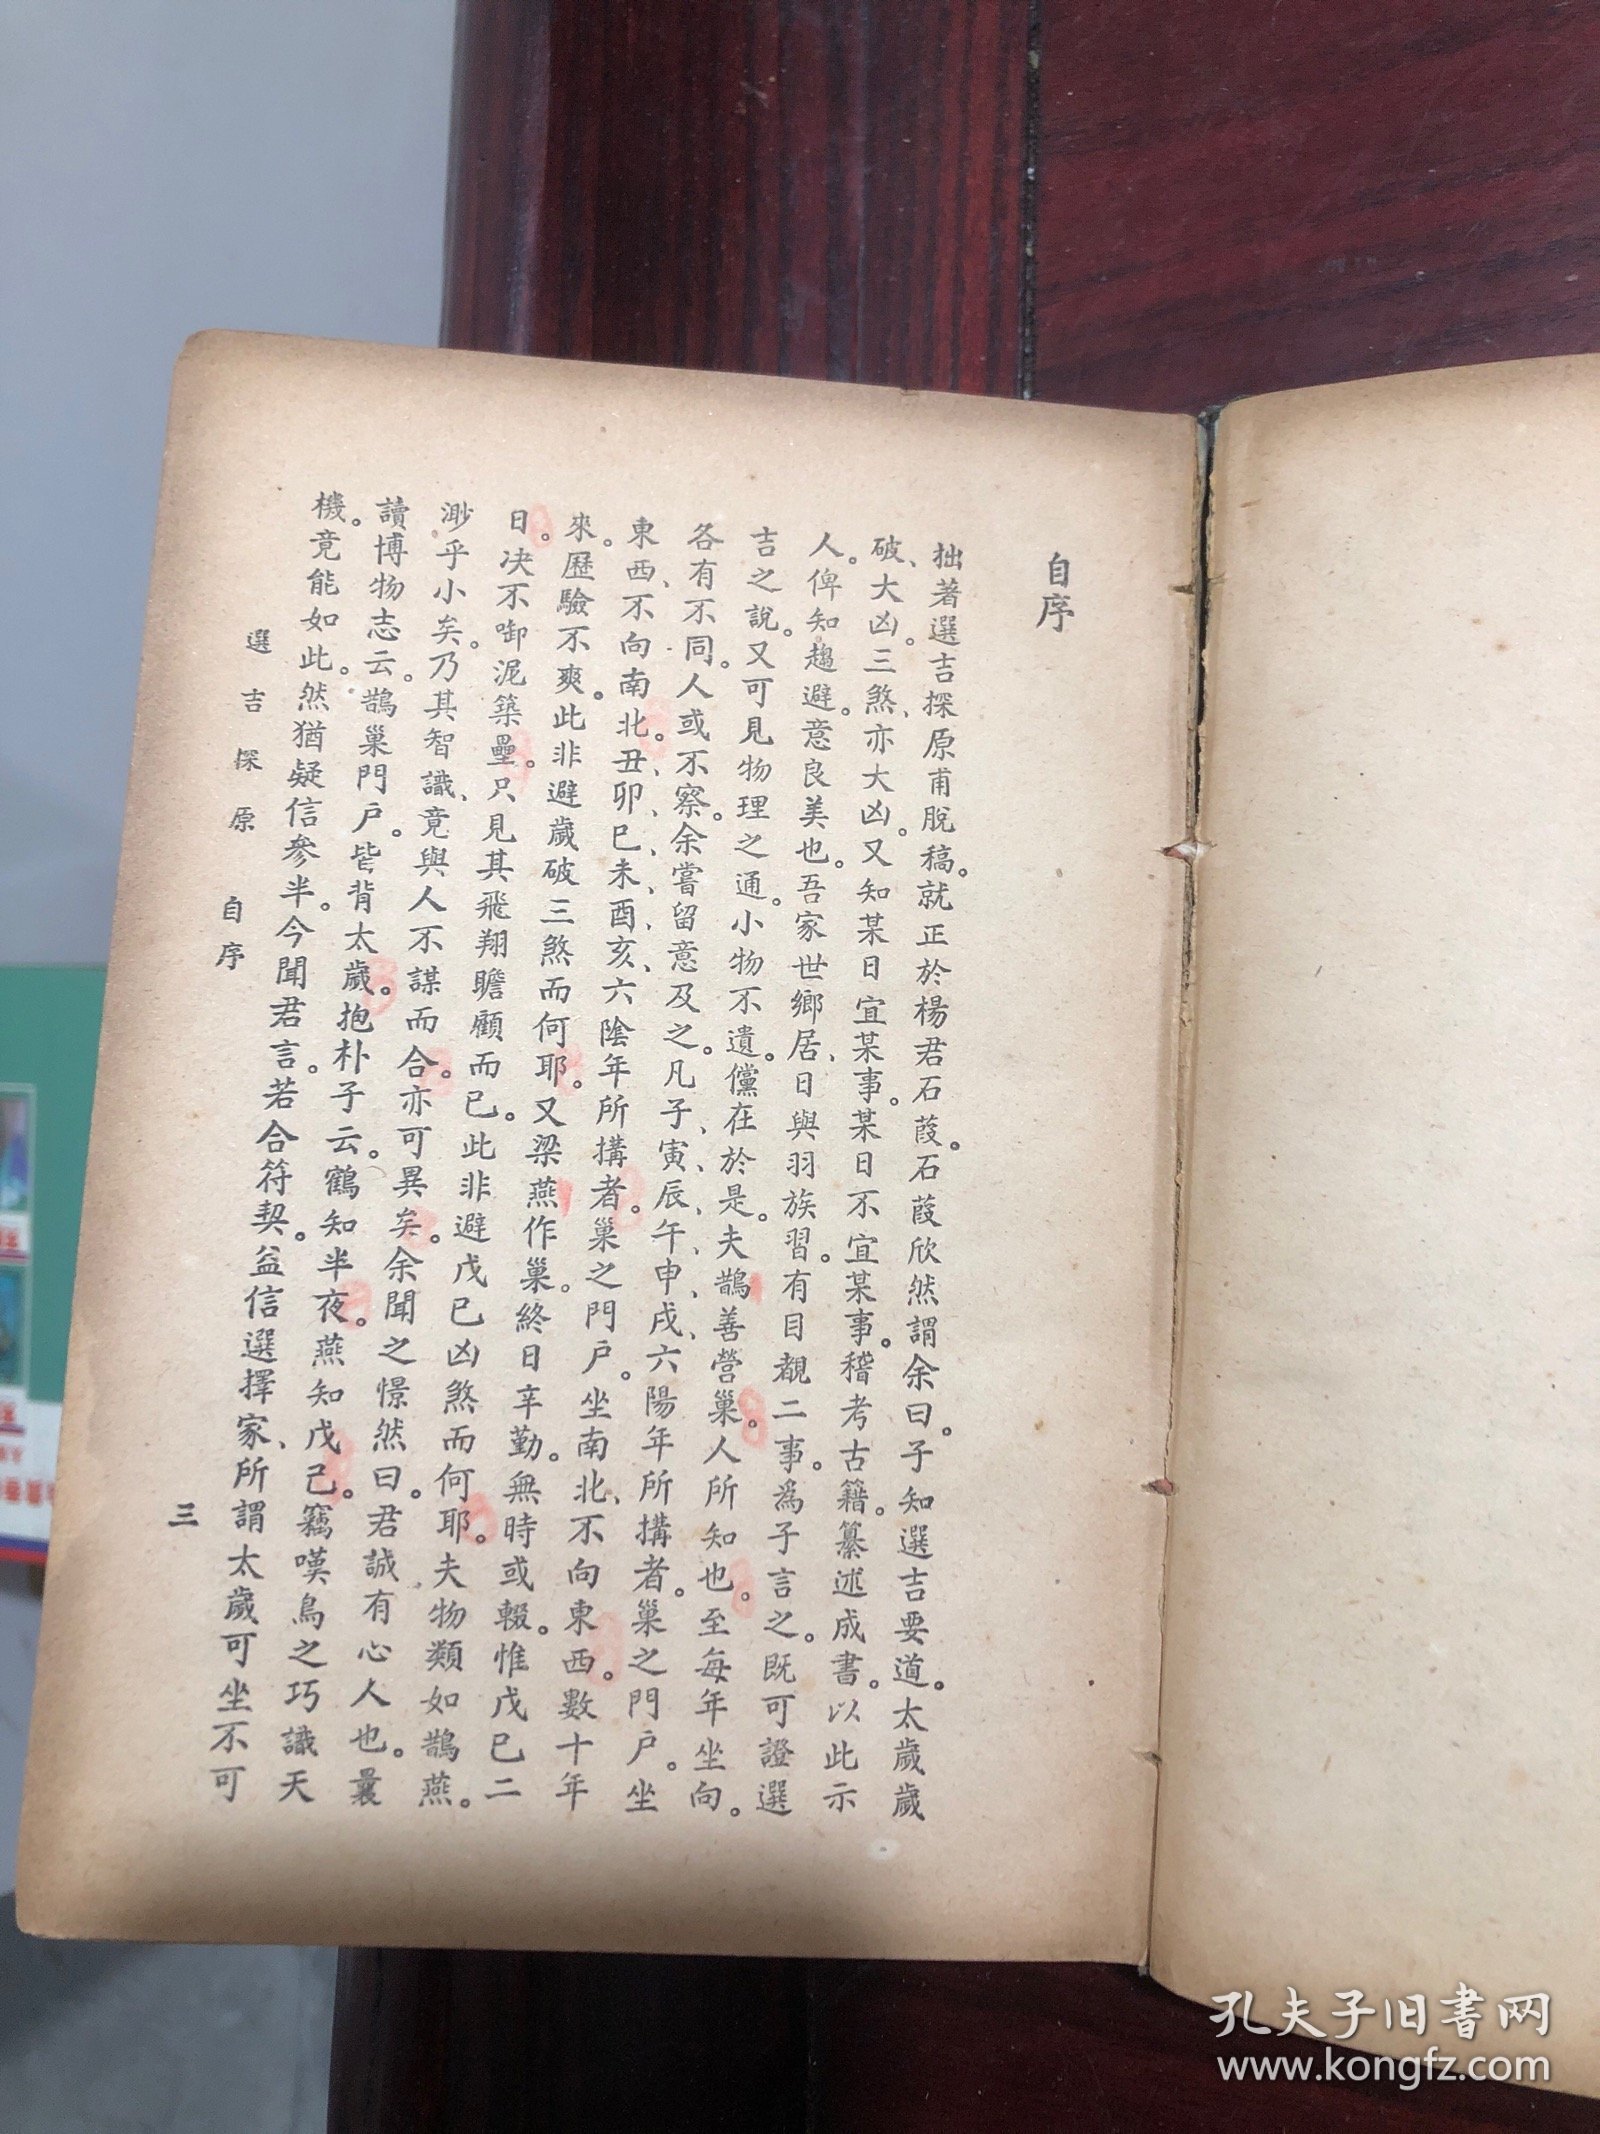 自序
拙著選吉探原甫脫稿。就正於楊君石葭。石葭欣然謂余曰。子知選吉要道。太歲歲
破、大凶。三煞、亦大凶。又知某日宜某事。某日不宜某事。稽考古籍。纂述成書。以此示
人。俾知趨避。意良美也。吾家世鄉居、日與羽族習。有目覩二事。爲子言之。既可證選
吉之說。又可見物理之通。小物不遺。儻在於是。夫鵲善營巢。人所知也。至每年坐向。
各有不同。人或不察。余嘗留意及之。凡子、寅、辰、午、申、戌、六陽年所搆者。巢之門戶。坐
東西、不向南北。丑、卯、巳、未、酉、亥、六陰年所搆者。巢之門戶。坐南北、不向東西。數十年
來。歷驗不爽。此非避歲破三煞而何耶。又梁燕作巢。終日辛勤。無時或輟。惟戊巳二
日。决不啣泥築壘。只見其飛翔瞻顧而已。此非避戊巳凶煞而何耶。夫物類如鵲燕。
渺乎小矣。乃其智識、竟與人不謀而合。亦可異矣。余聞之憬然曰。君誠有心人也。曩
讀博物志云。鵲巢門戶。皆背太歲。抱朴子云。鶴知半夜。燕知戊己。竊嘆鳥之巧識天
機。竟能如此。然猶疑信參半。今聞君言。若合符契。益信選擇家、所謂太歲可坐不可
選吉探原 自序
三
孔夫子旧书网
www.kongfz.com